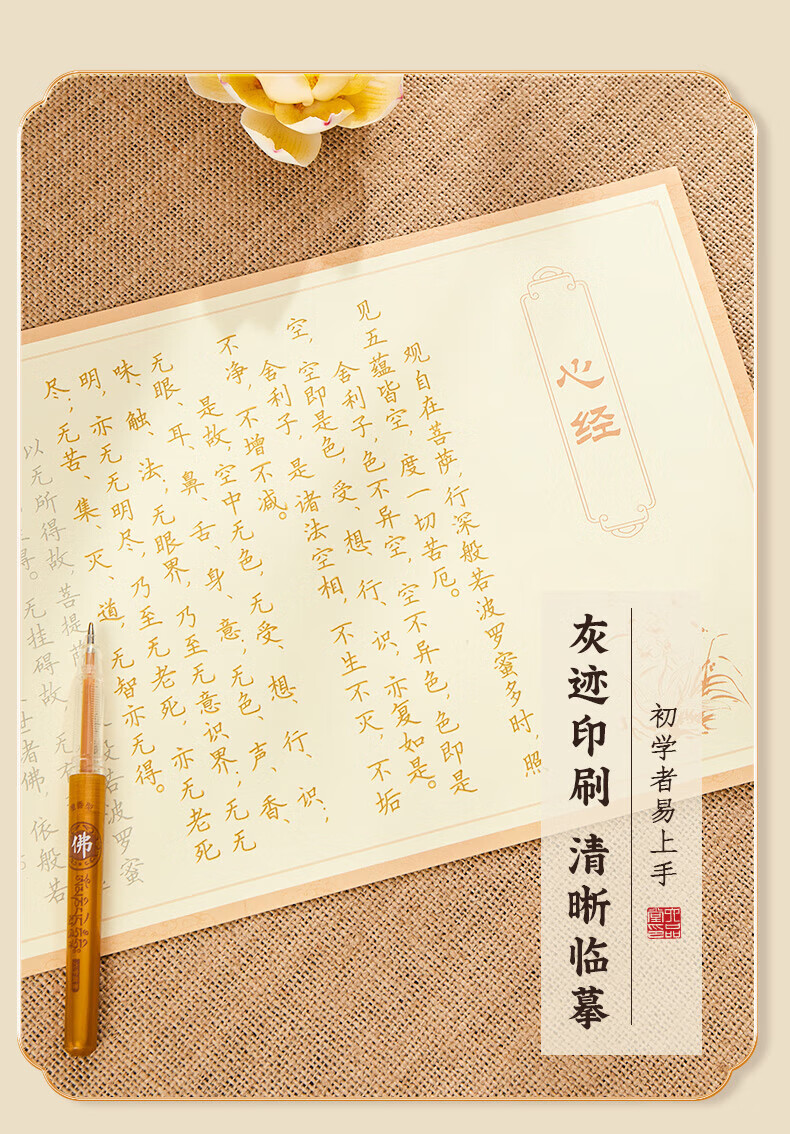 心经
观自在菩萨,行深般若波罗蜜多时,照
见五蕴皆空,度一切苦厄。
舍利子,色不异空,空不异色,色即是
空,空即是色,受、想、行、识,亦复如是。
舍利子,是诸法空相,不生不灭,不垢
不净,不增不减。
是故,空中无色,无受、想、行、识;
无眼、耳、鼻、舌、身、意;无色、声、香、
味、触、法;无眼界,乃至无意识界;无无
明,亦无无明尽,乃至无老死,亦无老死
尽;无苦、集、灭、道,无智亦无得。
以无所得故,菩提萨 般若波罗蜜
无挂碍故,无
佛,依般若
佛
灰迹印刷 清晰临摹
初学者易上手